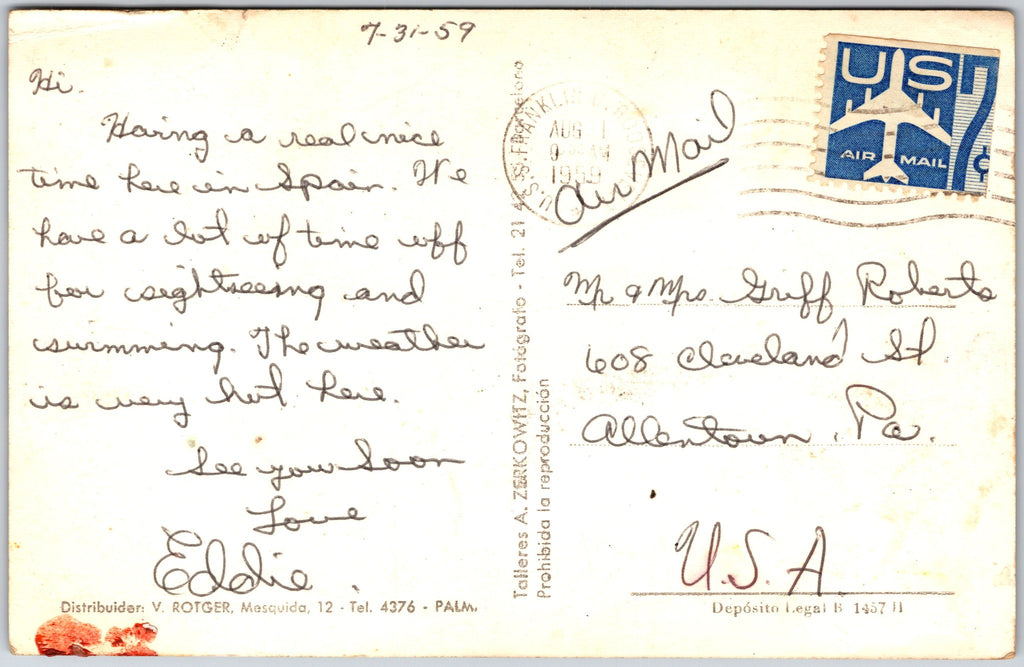 7-31-59
Hi.
Having a real nice
time here in Spain. We
have a lot of time off
for sightseeing and
swimming. The weather
is very hot here.
See you Soon
Love
Eddie.
Distribuidor: V. ROTGER, Mesquida, 12 - Tel. 4376 - PALM.
Talleres A. ZERKOWITZ, Fotógrafo - Tel. 21
Prohibida la reproducción
AUG 1
1959
U.S.S. FRANKLIN D.
Air Mail
US
AIR MAIL
7¢
Mr & Mrs. Griff Roberts
608 Cleveland St.
Allentown, Pa.
U.S.A.
Depósito Legal B 1457 II